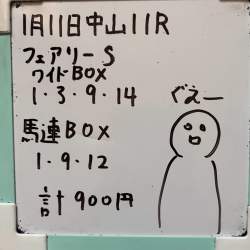 1月11日中山11R
フェアリーS
ワイドBOX
1・3・9・14
ぐえー
馬連BOX
1・9・12
計900円